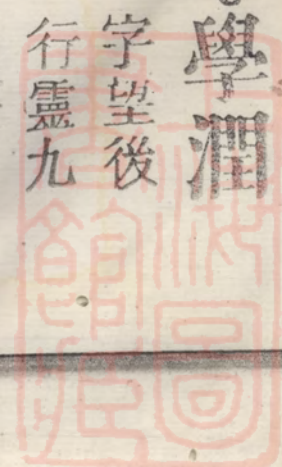 學潤
字望後
行靈九